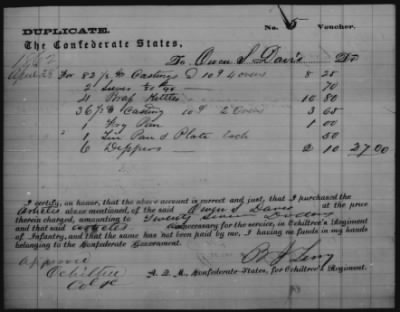 DUPLICATE. No. 5 Voucher.
The Confederate States,
1862 To Owen S Davis Dr
April 28 For 82 lbs Castings @ 10¢ 4 ovens 8 25
2 Sieves 70
4 Brass Kettles 10 80
36 lbs Casting 10¢ 2 Ovens 3 65
1 Fry Pan 1 00
1 Tin Pan & Plate Each 50
6 Dippers 2 10 27.00
I certify, on honor, that the above account is correct and just, that I purchased the
articles above mentioned, of the said Owen S Davis at the price
therein charged, amounting to Twenty Seven Dollars
and that said articles necessary for the service, in Ochiltree's Regiment
of Infantry, and that the same has not been paid by me, I having no funds in my hands
belonging to the Confederate Government.
Approved
Ochiltree
A. Q. M., Confederate States, for Ochiltree's Regiment.